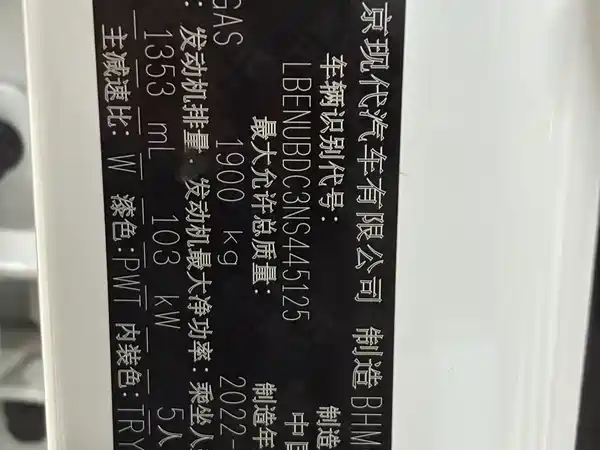 京现代汽车有限公司 制造 BHM
车辆识别代号: 制造
LBENUBDC3NS445125 中国
最大允许总质量: 制造年
1900 kg 2022-
发动机排量: 发动机最大净功率: 乘坐人
1353 mL 103 kW 5人
主减速比: W 漆色: PWT 内装色: TRY
GAS